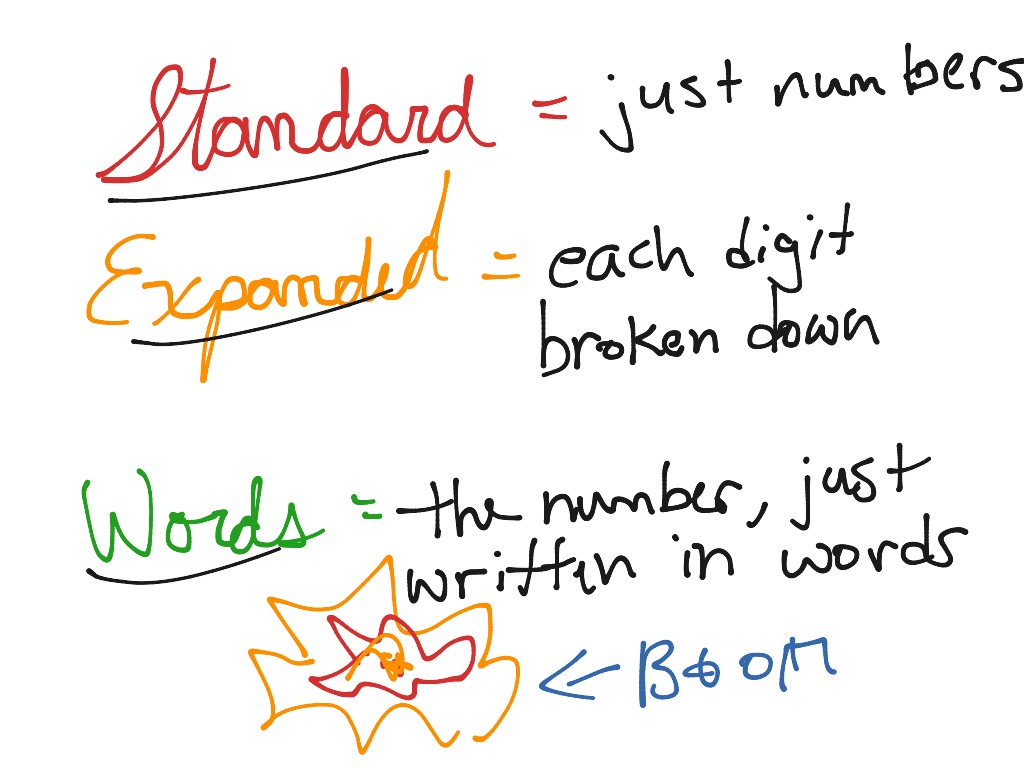 Standard = just numbers
Expanded = each digit
broken down
Words = the number, just
written in words
← BOOM